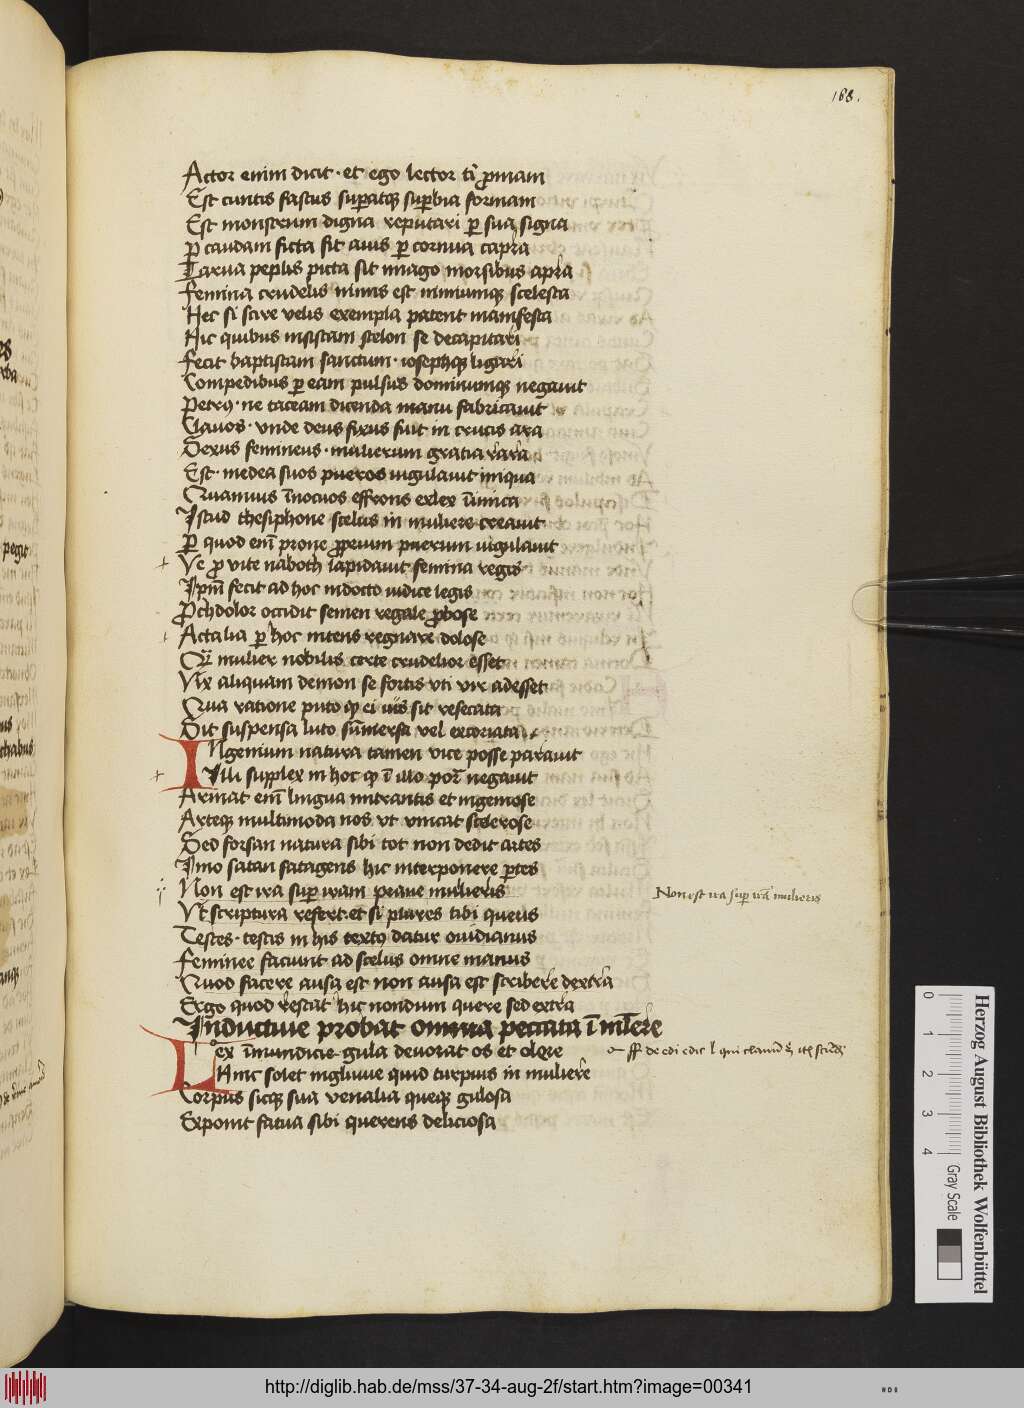 168.
Actor enim dicit · et ego lector tibi promam
Est cuntis fastus superatque superbia formam
Est monstrum digna reputari per sua signa
per caudam ficta sit auis per cornua capra
Larua peplis picta sit imago morsibus apra
Femina crudelis nimis est nimiumque scelesta
Hec si scire velis exempla patent manifesta
Hic quibus insistam scelon se decapitari
Fecit baptistam sanctum · iosephque ligari
Compedibus per eam pulsus dominumque negauit
Petrus · ne taceam dicenda manu fabricauit
Clauos · vnde deus fixus fuit in crucis ara
Sexus femineus · mulierum gratia rara
Est · medea suos pueros iugulauit iniqua
Quamuis innocuos effrons exlex inimica
Istud thesiphone scelus in muliere creauit
Per quod enim prone proprium puerum iugulauit
Ve pro vite naboth lapidauit femina regis
Ipsum fecit ad hoc indocto iudice legis
Prohdolor occidit semen regale probose
Actalia per hoc nitens regnare dolose
Cum mulier nobilis certe crudelior esset
Vix aliquam demon se fortis vti vir adesset
Qua ratione puto quod ei uis sit resecata
Sit suspensa luto summersa vel excoriata
INgenium natura tamen vice posse parauit
Illi supplex in hoc quod in illo por negauit
Armat enim lingua intrantis et ingeniose
Arteque multimoda nos vt vincat scelerose
Sed forsan natura sibi tot non dedit artes
Imo satan satagens hic interponere partes
Non est ira super iram praue mulieris
Non est ira super iram mulieris
Vt scriptura refert · et si plures tibi queris
Testes · testis in his textus datur ouidianus
Feminee faciunt ad scelus omne manus
Quod facere ausa est non ausa est scribere dextra
Ergo quod restat hic nondum quere sed extra
Inductiue probat omnia peccata in muliere
Lex immundicie gula deuorat os et olere
ff de edi edic l qui
HAnc solet ingluuie quid turpius in muliere
Corpus sicque sua venalia queque gulosa
Exponit fatua sibi querens deliciosa
Herzog August Bibliothek Wolfenbüttel
0 1 2 3 4 Gray Scale
http://diglib.hab.de/mss/37-34-aug-2f/start.htm?image=00341